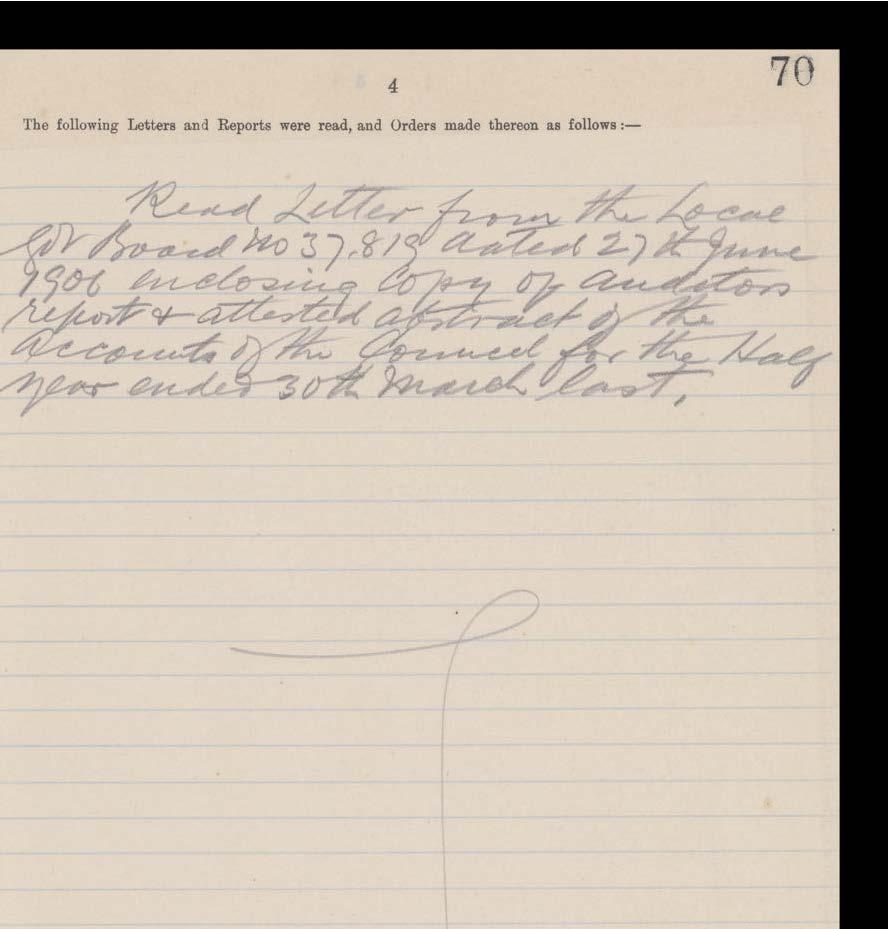 70
4
The following Letters and Reports were read, and Orders made thereon as follows :—
Read Letter from the Local
Govt Board No 37,819 dated 27th June
1906 enclosing Copy of Auditors
report & attested abstract of the
Accounts of the Council for the Half
year ended 30th March last.